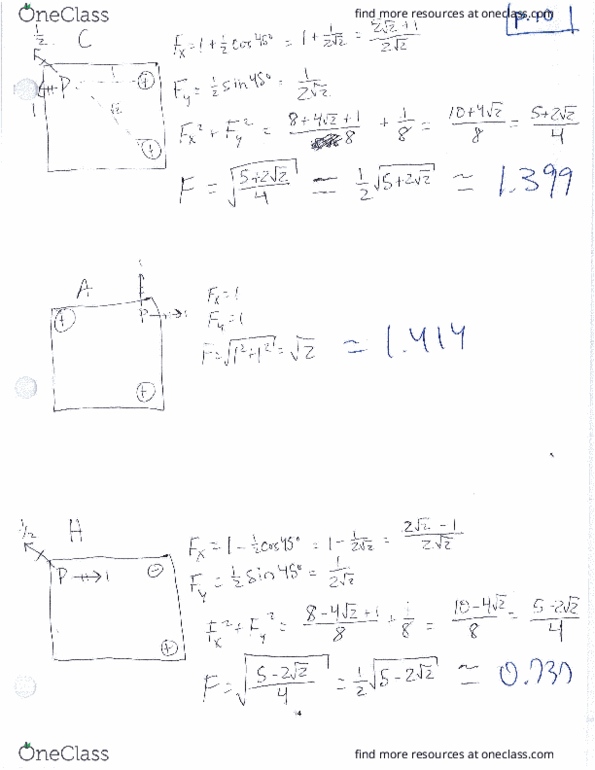 OneClass
find more resources at oneclass.com
p. 10
1/2 C
Fx = 1 + 1/2 cos 45° = 1 + 1/2√2 = 2√2 + 1 / 2√2
P 1 +
1
√2
+
Fy = 1/2 sin 45° = 1/2√2
Fx² + Fy² = 8 + 4√2 + 1 / 8 + 1/8 = 10 + 4√2 / 8 = 5 + 2√2 / 4
F = √(5 + 2√2 / 4) = 1/2 √(5 + 2√2) ≈ 1.399
A 1
+ P → 1
+
Fx = 1
Fy = 1
F = √(1² + 1²) = √2 = 1.414
1/2 H
P → 1 −
+
Fx = 1 − 1/2 cos 45° = 1 − 1/2√2 = 2√2 − 1 / 2√2
Fy = 1/2 sin 45° = 1/2√2
Fx² + Fy² = 8 − 4√2 + 1 / 8 + 1/8 = 10 − 4√2 / 8 = 5 − 2√2 / 4
F = √(5 − 2√2 / 4) = 1/2 √(5 − 2√2) ≈
OneClass
find more resources at oneclass.com